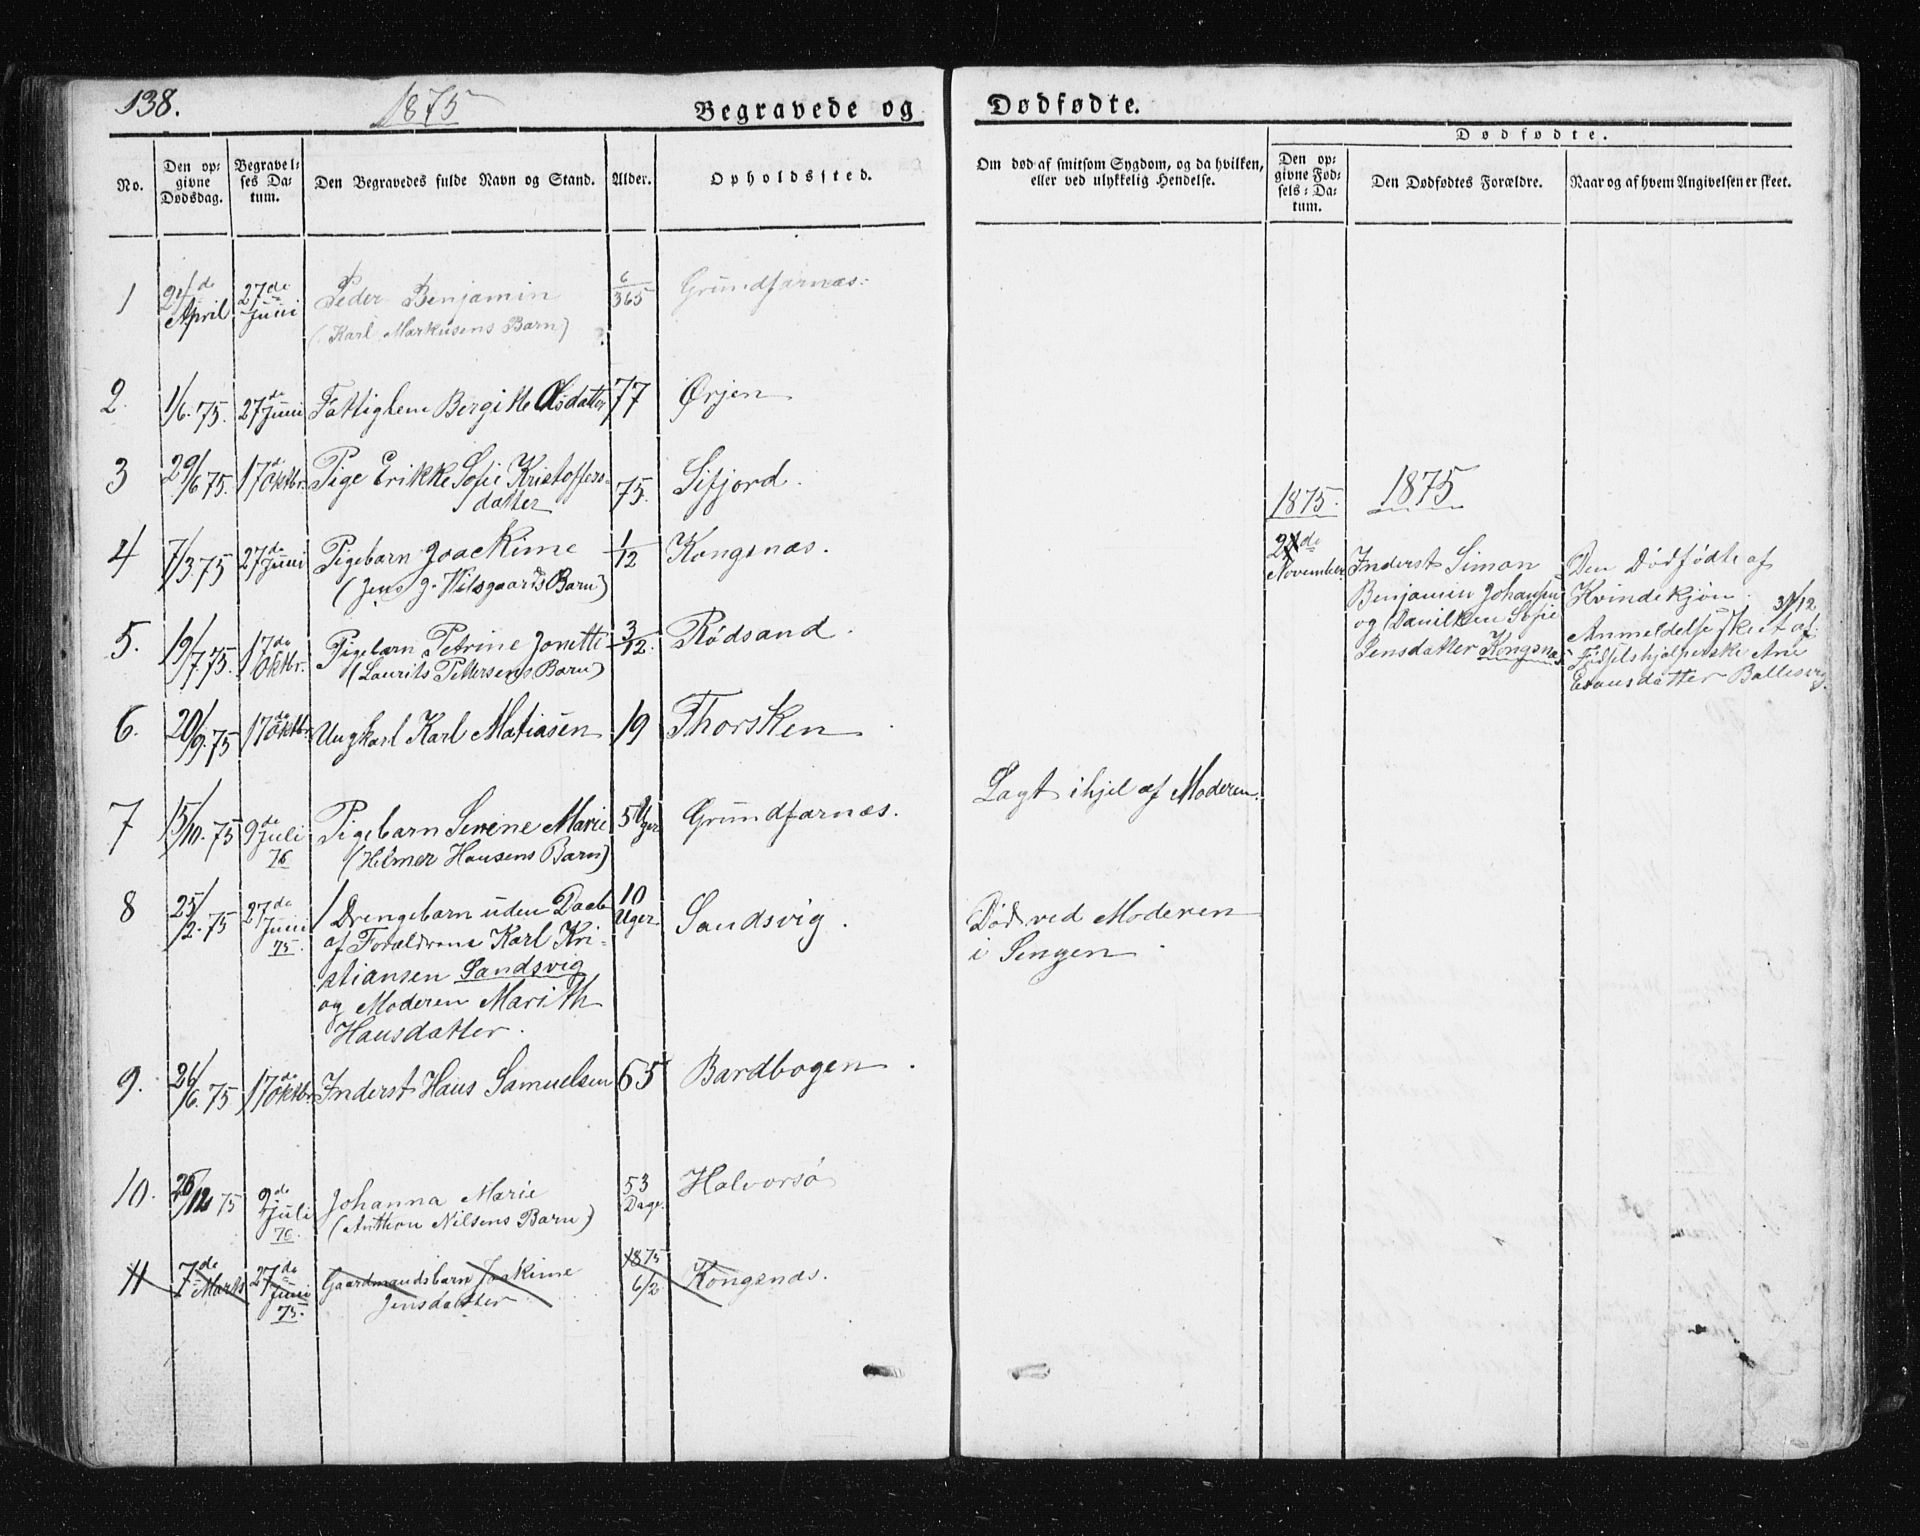 138.
1875
Begravede og
Dødfødte.
No.
Den op-
givne
Dødsdag.
Begravel-
ses Da-
tum.
Den Begravedes fulde Navn og Stand.
Alder.
Opholdssted.
Om død af smitsom Sygdom, og da hvilken,
eller ved ulykkelig Hendelse.
Dødfødte.
Den op-
givne Fød-
sels-Da-
tum.
Den Dødfødtes Forældre.
Naar og af hvem Angivelsen er skeet.
1
24de
April
27de
Juni
Peder Benjamin
(Karl Markusens Barn)
6/365
Grundfarnæs.
2.
1/6. 75.
27de Juni
Fattiglem Bergitte Olsdatter
77
Ørjen
3
29/6 75.
17de Oktbr.
Pige Erikke Sofie Kristoffers-
datter
75.
Sifjord.
4
7/3. 75
27de Juni
Pigebarn Joackime
(Jens J. Hilsgaards Barn)
1/12
Kongsnæs.
5.
19/7. 75.
17de Oktbr.
Pigebarn Petrine Jonette
(Laurits Pettersens Barn)
3/12.
Rødsand.
6.
20/9. 75
17de Oktbr.
Ungkarl Karl Matiasen
19
Thorsken
7
15/10. 75
9de Juli
76
Pigebarn Serene Marie
(Hilmer Hansens Barn)
5 Uger
Grundfarnæs.
Lagt ihjel af Moderen.
8
25/2. 75
27de
Juni
75.
1 Drengebarn uden Daab
af Forældrene Karl Kri-
stiansen Sandsvig
og Moderen Marith
Hansdatter.
10
Uger
Sandsvig.
Død ved Moderen
i Sengen.
9.
26/6. 75
17de Oktbr.
Inderst Hans Samuelsen
65
Bardbogen.
10.
26/12 75
9de
Juli
76.
Johanna Marie
(Anthon Nilsens Barn)
53
Dage.
Halvorsø
11
7de
Marts
27de
Juni
75.
Gaardmandsbarn Joakime
Jensdatter
1875
6/2
Kongsnæs.
1875.
1875
de
November
Inderst Simon
Benjamin Johansen
og Danilken Sofie
Jensdatter Kongsnæs
Den Dødfødte af
Kvindekjøn. 31/12
Anmeldelse skeet af
Fødselshjelperske Ane
Evansdatter Ballesvig.